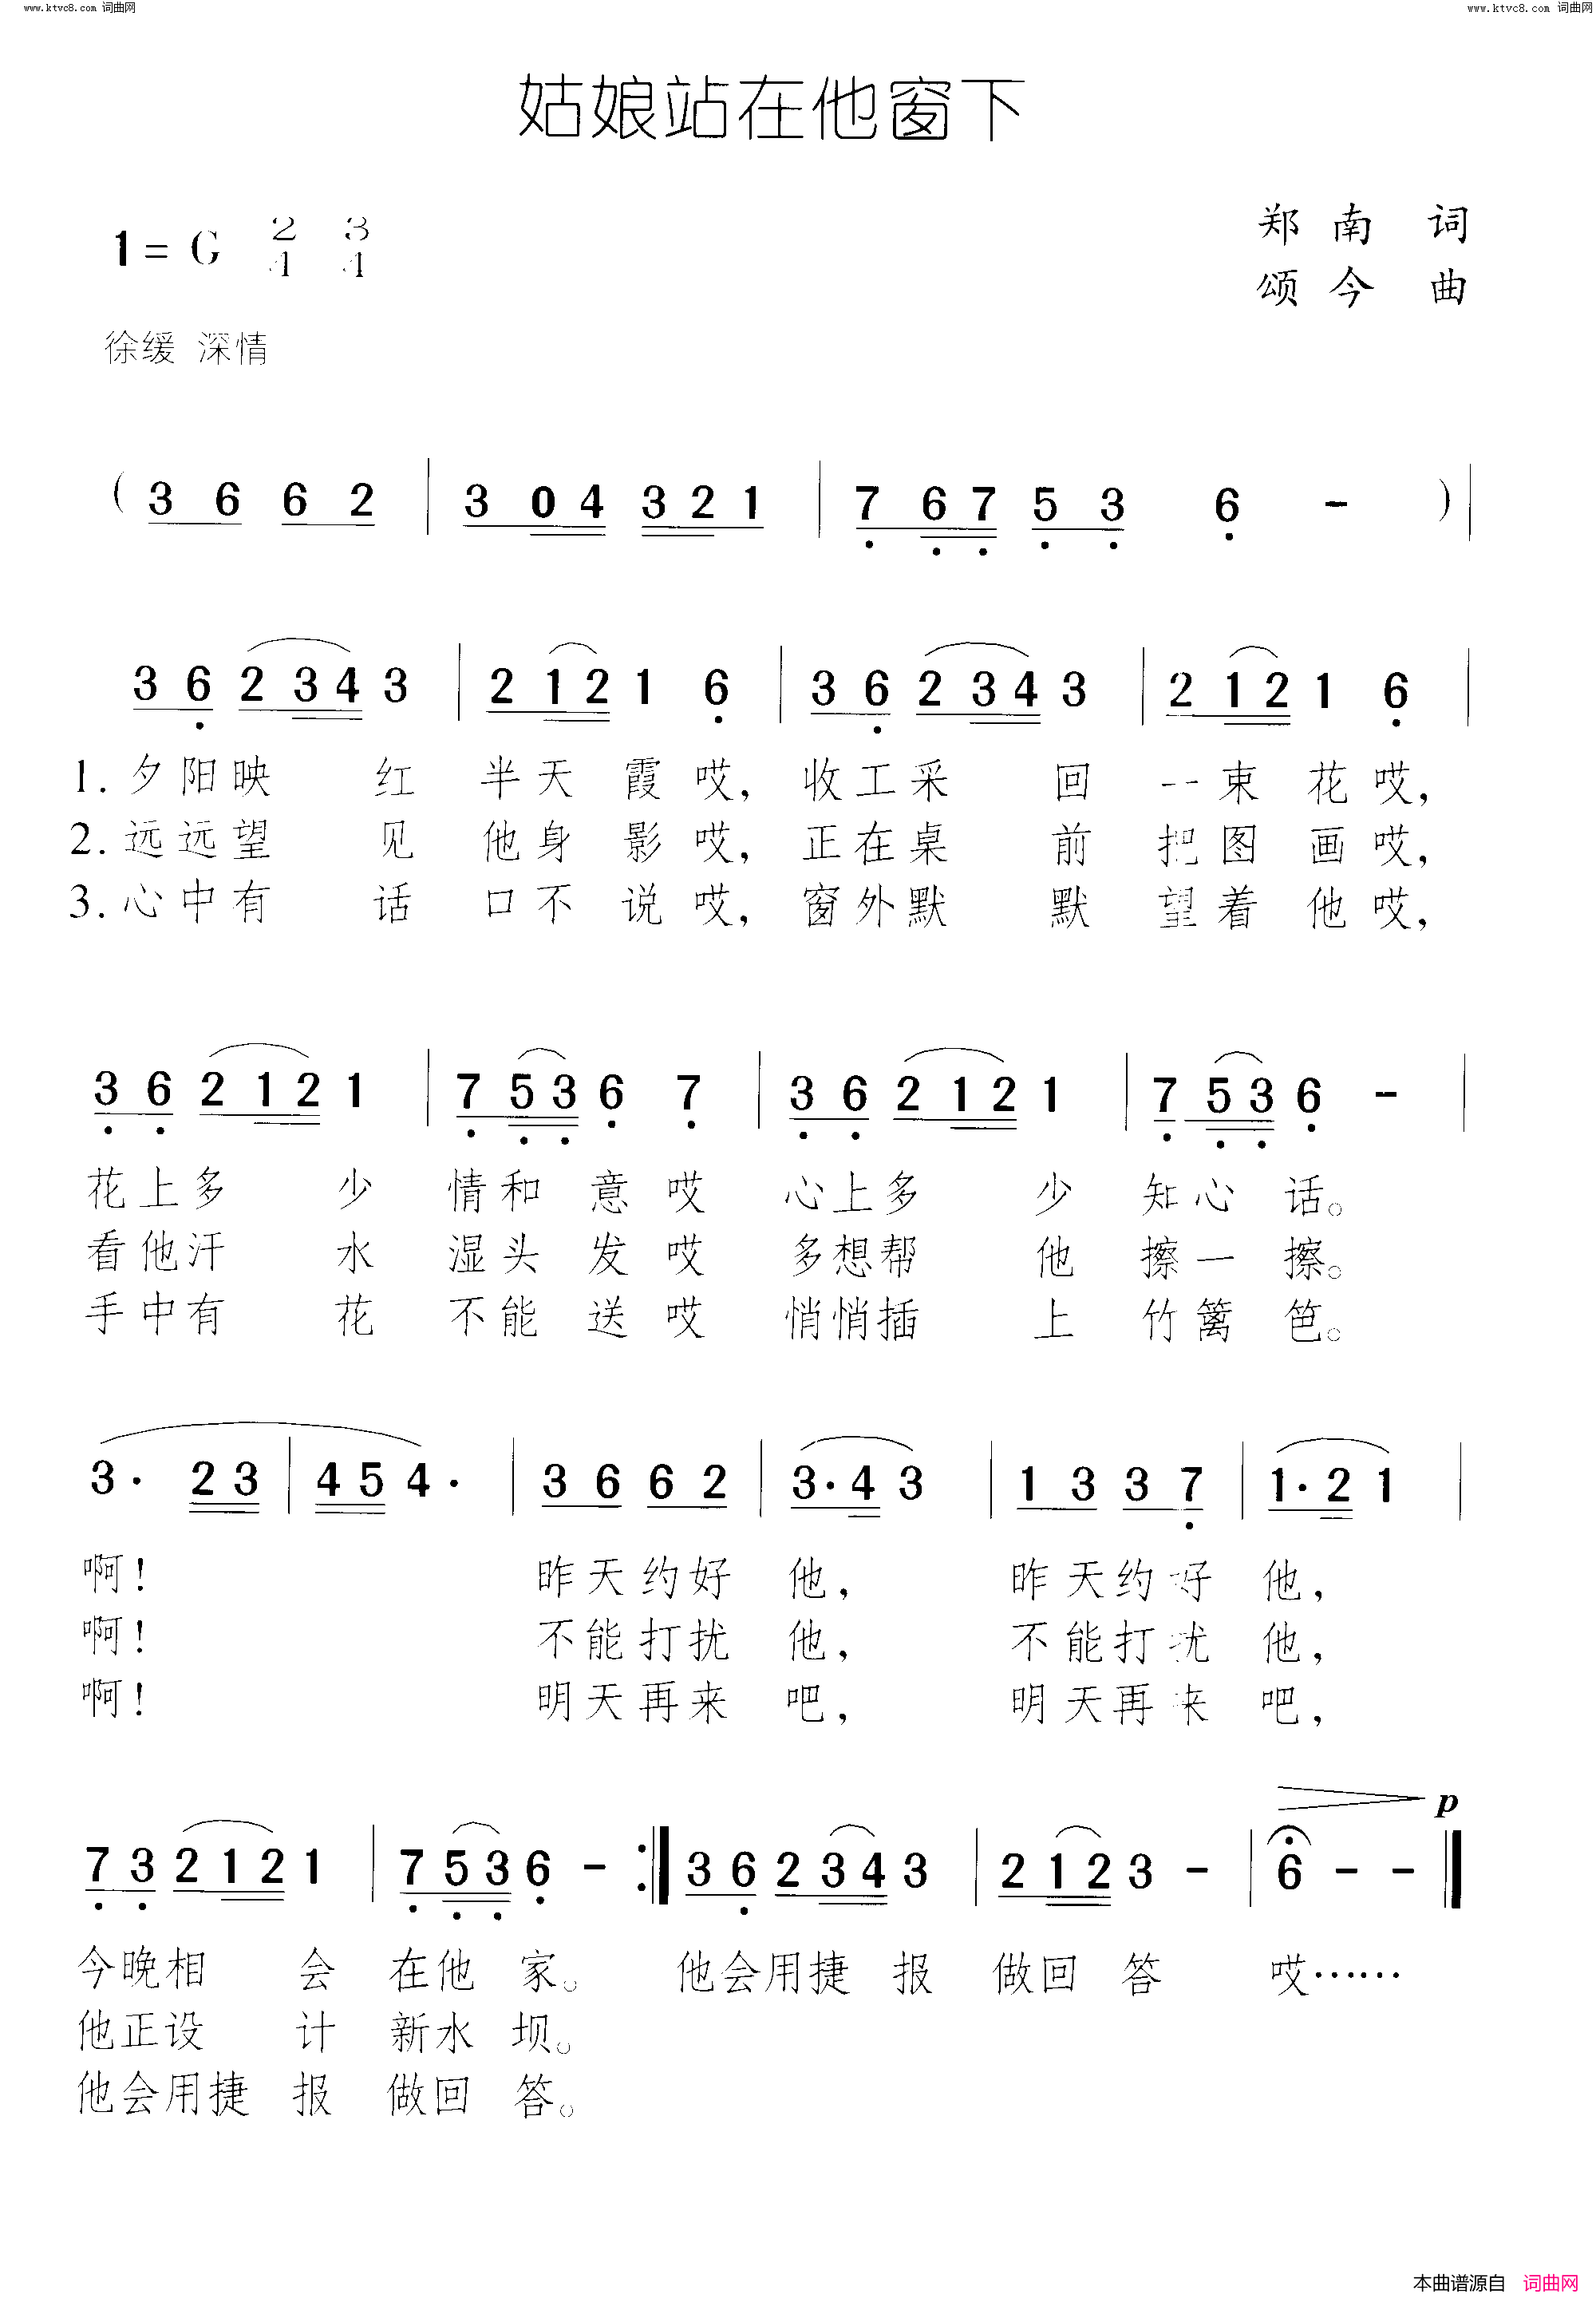 www.ktvc8.com 词曲网
www.ktvc8.com 词曲网
姑娘站在他窗下
1 = G 2/4 3/4
郑南 词
颂今 曲
徐缓 深情
( 3 6 6 2 | 3 0 4 3 2 1 | 7 6 7 5 3 6 - ) |
3 6 2 3 4 3 | 2 1 2 1 6 | 3 6 2 3 4 3 | 2 1 2 1 6 |
1. 夕阳映 红 半天 霞哎, 收工采 回 一束 花哎,
2. 远远望 见 他身 影哎, 正在桌 前 把图 画哎,
3. 心中有 话 口不 说哎, 窗外默 默 望着 他哎,
3 6 2 1 2 1 | 7 5 3 6 7 | 3 6 2 1 2 1 | 7 5 3 6 - |
花上多 少 情和 意 哎 心上多 少 知心 话。
看他汗 水 湿头 发 哎 多想帮 他 擦一 擦。
手中有 花 不能 送 哎 悄悄插 上 竹篱 笆。
3 · 2 3 | 4 5 4 · | 3 6 6 2 | 3 · 4 3 | 1 3 3 7 | 1 · 2 1 |
啊! 昨天约好 他, 昨天约好 他,
啊! 不能打扰 他, 不能打扰 他,
啊! 明天再来 吧, 明天再来 吧,
p
7 3 2 1 2 1 | 7 5 3 6 - :‖ 3 6 2 3 4 3 | 2 1 2 3 - | 6 - - ‖
今晚相 会 在他 家。 他会用捷 报 做回 答 哎……
他正设 计 新水 坝。
他会用捷 报 做回 答。
本曲谱源自 词曲网